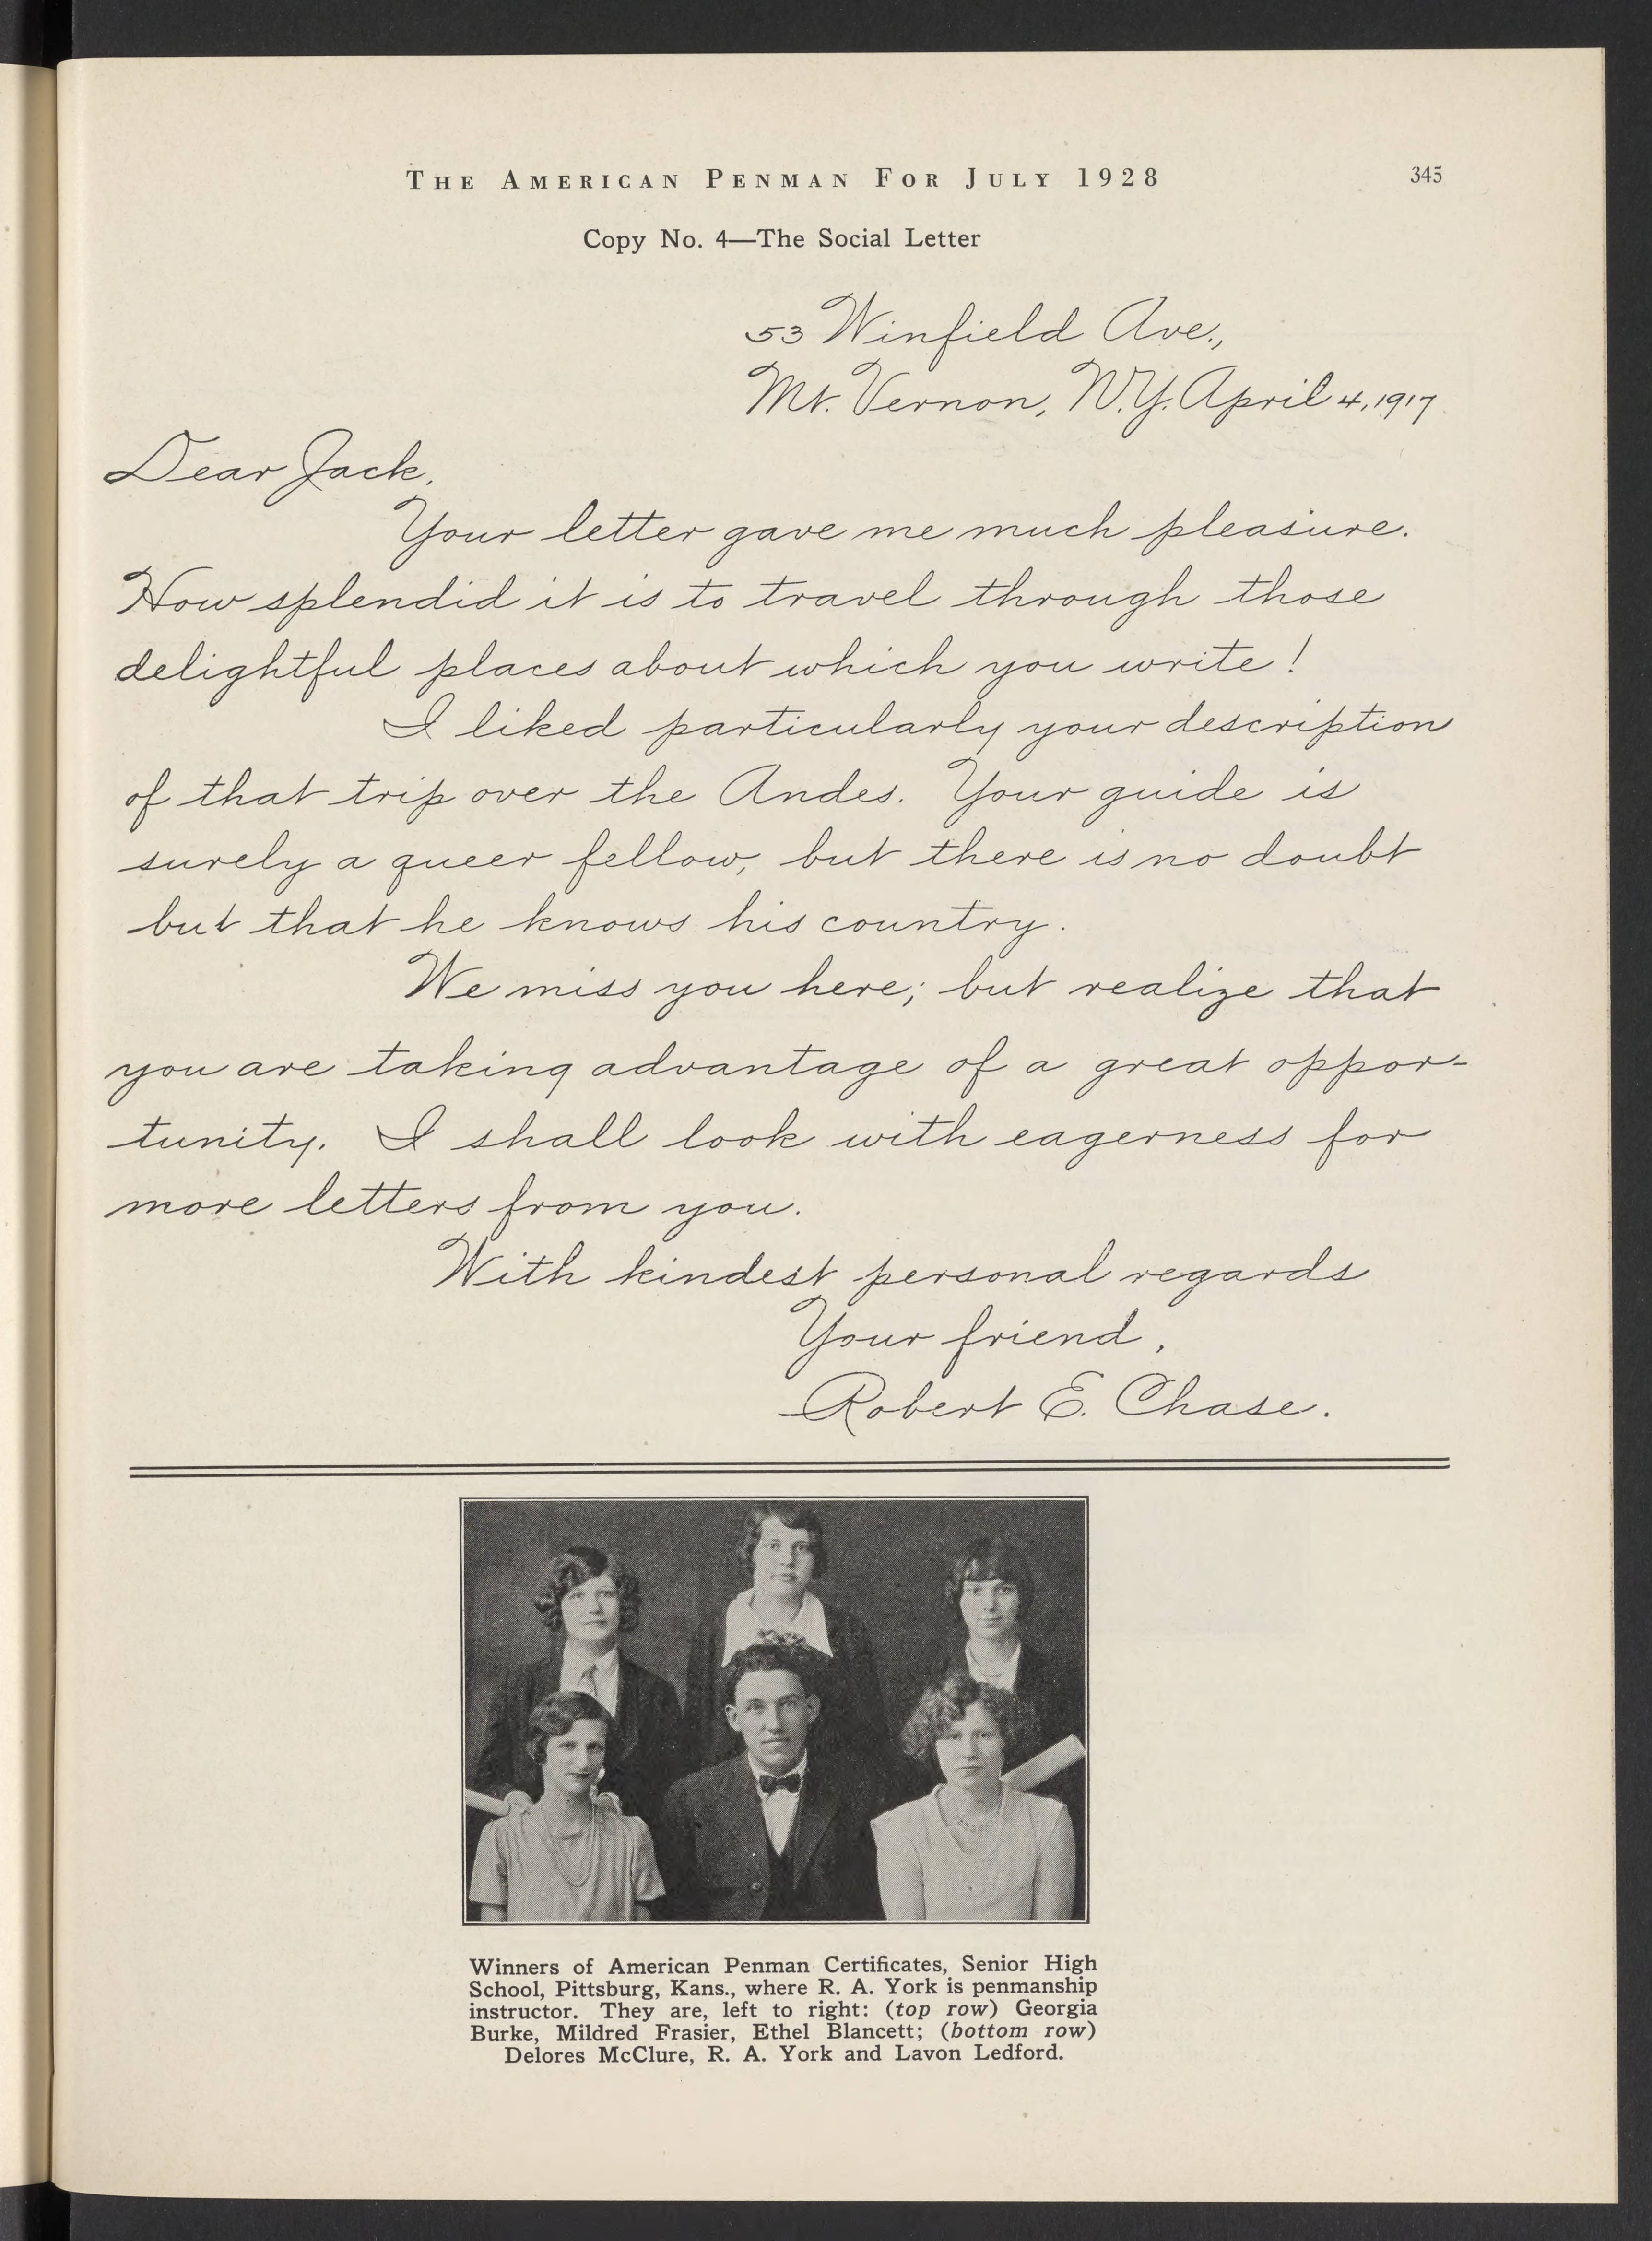 THE AMERICAN PENMAN FOR JULY 1928 345
Copy No. 4—The Social Letter
53 Winfield Ave.,
Mt. Vernon, N.Y. April 4, 1917
Dear Jack,
Your letter gave me much pleasure.
How splendid it is to travel through those
delightful places about which you write!
I liked particularly your description
of that trip over the Andes. Your guide is
surely a queer fellow, but there is no doubt
but that he knows his country.
We miss you here; but realize that
you are taking advantage of a great oppor-
tunity. I shall look with eagerness for
more letters from you.
With kindest personal regards
Your friend,
Robert E. Chase.
Winners of American Penman Certificates, Senior High
School, Pittsburg, Kans., where R. A. York is penmanship
instructor. They are, left to right: (top row) Georgia
Burke, Mildred Frasier, Ethel Blancett; (bottom row)
Delores McClure, R. A. York and Lavon Ledford.